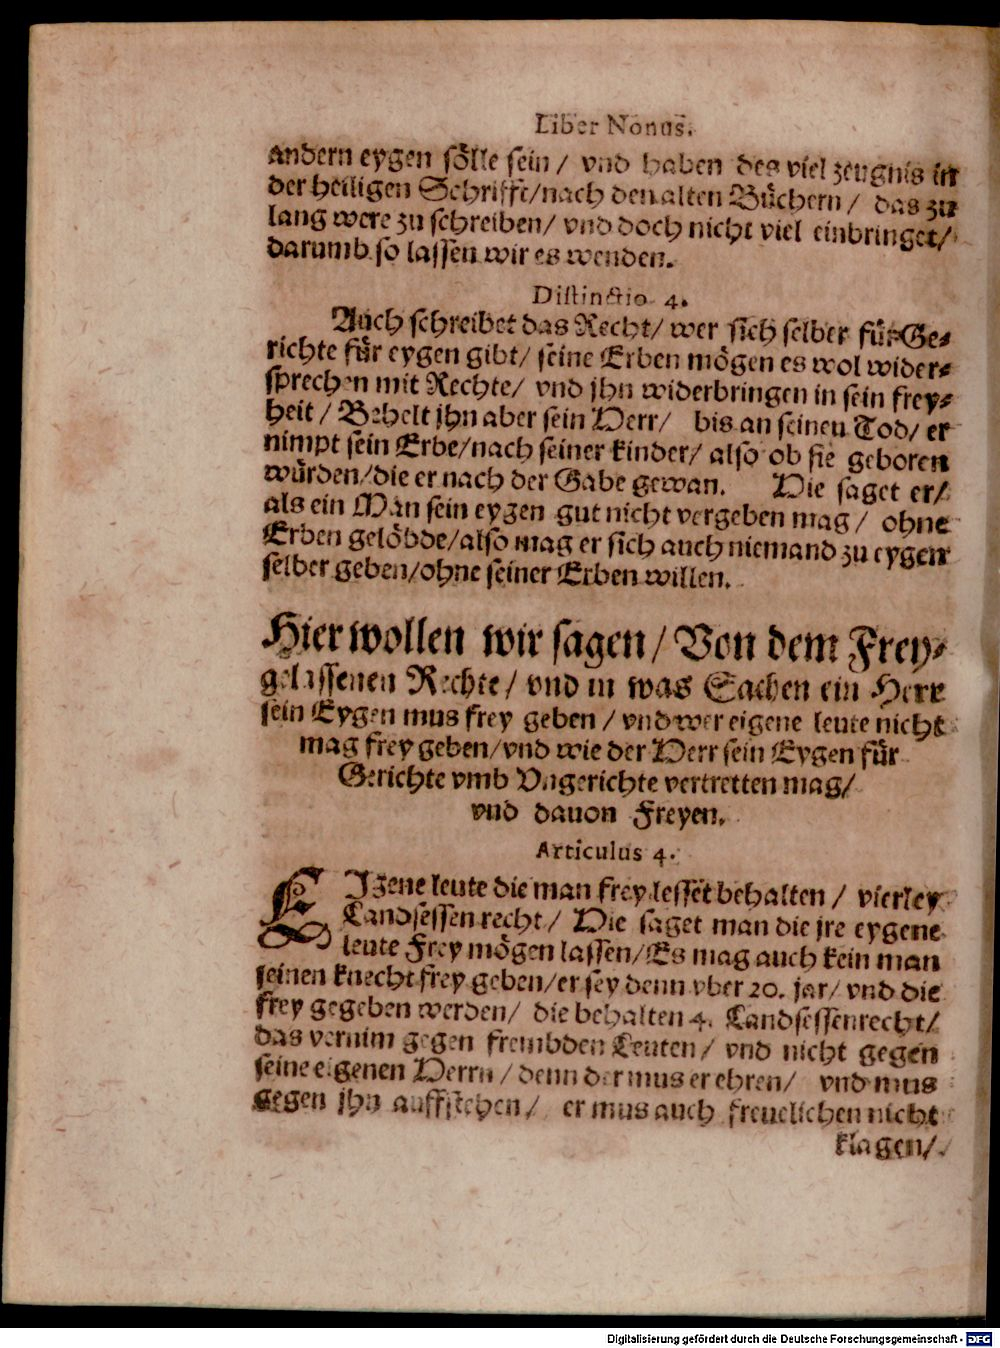 Liber Nonus.
andern eygen sölle sein / vnd haben des viel zeugnis in
der heiligen Schrifft/nach den alten Büchern / das zu
lang were zu schreiben/ vnd doch nicht viel einbringet/
darumb so lassen wir es wenden.
Distinctio 4.
Auch schreibet das Recht/ wer sich selber für Ge-
richte für eygen gibt/ seine Erben mögen es wol wider-
sprechen mit Rechte/ vnd jhn widerbringen in sein frey-
heit / Behelt jhn aber sein Herr/ bis an seinen Tod/ er
nimpt sein Erbe/nach seiner kinder/ also ob sie geboren
würden/die er nach der Gabe gewan. Hie saget er/
als ein Man sein eygen gut nicht vergeben mag / ohne
Erben gelöbde/also mag er sich auch niemand zu eygen
selber geben/ohne seiner Erben willen.
Hier wollen wir sagen / Von dem Frey-
gelassenen Rechte / vnd in was Sachen ein Herr
sein Eygen mus frey geben / vnd wer eigene leute nicht
mag frey geben/vnd wie der Herr sein Eygen für
Gerichte vmb Vngerichte vertretten mag/
vnd dauon Freyen.
Articulus 4.
EIgene leute die man frey lesset behalten / vierley
Landsessen recht / Hie saget man die jre eygene
leute Frey mögen lassen/Es mag auch kein man
seinen knecht frey geben/er sey denn vber 20. jar/ vnd die
frey gegeben werden/ die behalten 4. Landsessenrecht/
das vernim gegen frembden Leuten / vnd nicht gegen
seine eigenen Herrn / denn der mus er ehren/ vnd mus
gegen jhn auffstehen / er mus auch freuelichen nicht
klagen/.
Digitalisierung gefördert durch die Deutsche Forschungsgemeinschaft - DFG